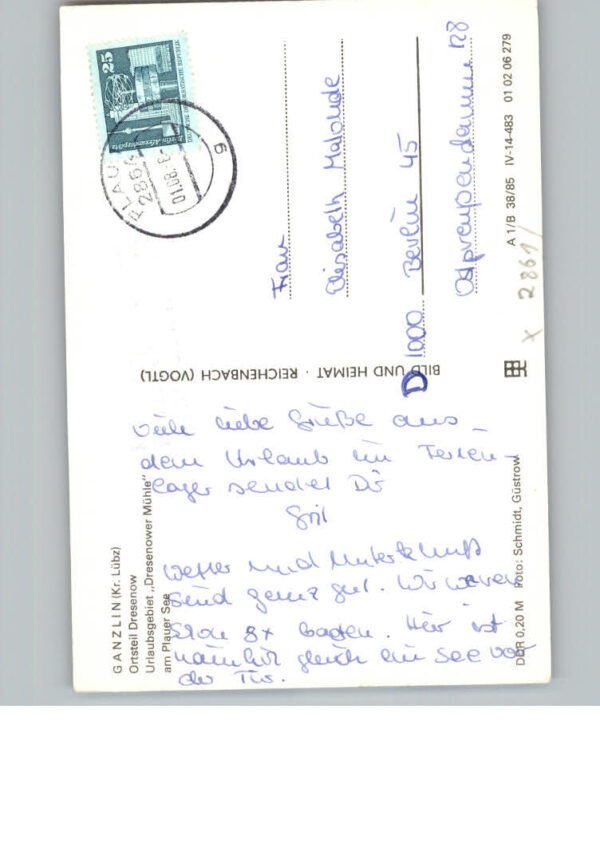 GANZLIN (Kr. Lübz)
Ortsteil Dresenow
Urlaubsgebiet „Dresenower Mühle"
am Plauer See
viele liebe Grüße aus
dem Urlaub im Ferien-
lager sendet Dir
Wetter und Unterkunft
sind ganz gut. Wir waren
schon 8x baden. Hier ist
nämlich gleich ein See vor
der Tür.
DDR 0,20 M Foto: Schmidt, Güstrow
BILD UND HEIMAT · REICHENBACH (VOGTL)
25
Berlin, Alexanderplatz
PLAU
286
01.08.
g
Frau
Elisabeth
D 1000 Berlin 45
Ostpreußendamm 128
A 1/B 38/85 IV-14-483 01 02 06 279
x 2861/